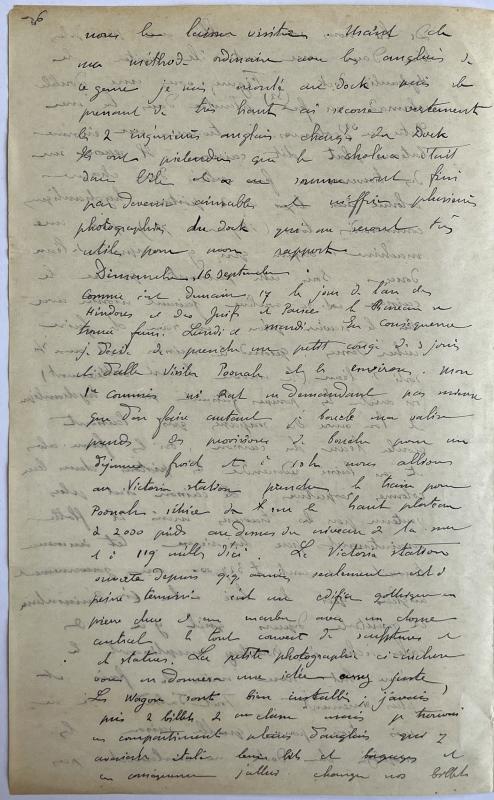 26
nous le laisser visiter. Usant de
ma méthode ordinaire avec les anglais de
ce genre je suis monté au dock puis le
prenant de très haut ai secoué vertement
les 2 ingénieurs anglais chargés du Dock
Ils ont prétendu que le choléra était
dans l'île et en somme ont fini
par devenir aimables et m'offrir plusieurs
photographies du dock qui me seront très
utiles pour mon rapport
Dimanche 16 septembre
Comme c'est demain 17 le jour de l'an des
Hindores et des Juifs et Parsees le Bureau se
trouve fermé Lundi et mardi. En conséquence
je décide de prendre un petit congé de 3 jours
et d'aller visiter Poonah et les environs. mon
1er commis ne demandant pas mieux
que d'en faire autant je boucle ma valise
prends des provisions de bouche pour un
déjeuner froid et à 10h nous allions
au Victoria station prendre le train pour
Poonah située sur le haut plateau
à 2000 pieds au dessus du niveau de la mer
et à 119 milles d'ici. Le Victoria station
ouverte depuis qq années seulement est à
peine terminé c'est une édifice gothique en
pierre dure et en marbre avec un dome
central le tout couvert de sculptures et
et statues. La petite photographie ci incluse
vous en donnera une idée assez juste
Les Wagons sont bien installés; j'avais
pris 2 billets 2me classe mais je trouvais
un compartiment pleins d'anglais qui y
avaient établi leurs lits et bagages et
en conséquence j'allais changer nos billets